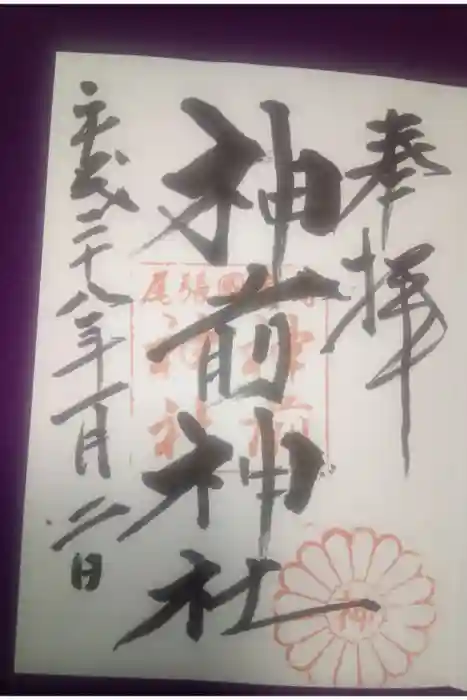 奉拝
神前神社
平成二十八年一月二日
尾張國
神前
神社
神